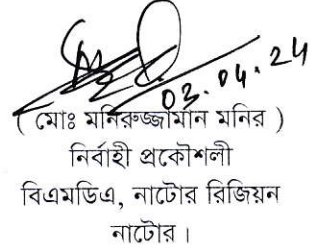 03.04.24
( মোঃ মনিরুজ্জামান মনির )
নির্বাহী প্রকৌশলী
বিএমডিএ, নাটোর রিজিয়ন
নাটোর।